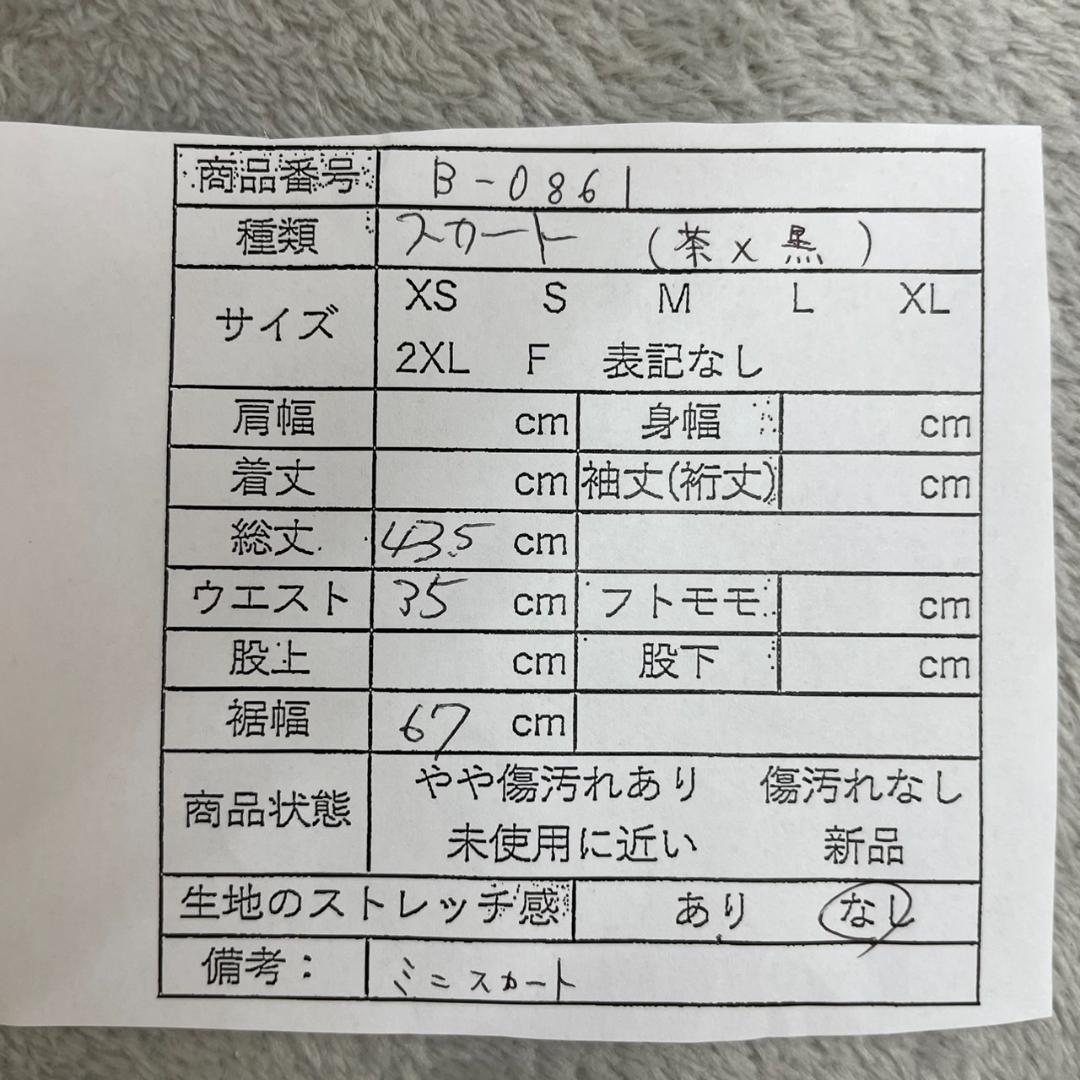 商品番号 B-0861
種類 スカート (茶x黒)
サイズ XS S M L XL
2XL F 表記なし
肩幅 cm 身幅 cm
着丈 cm 袖丈(裄丈) cm
総丈 43.5 cm
ウエスト 35 cm フトモモ cm
股上 cm 股下 cm
裾幅 67 cm
商品状態 やや傷汚れあり 傷汚れなし
未使用に近い 新品
生地のストレッチ感 あり なし
備考: ミニスカート